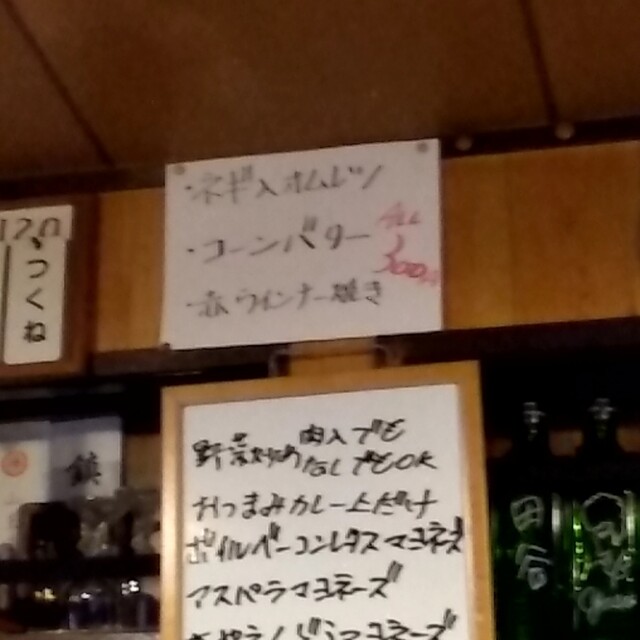 ・ネギ入オムレツ
・コーンバター
・赤ウインナー焼き
ALL
300円
120
つくね
鎮
野菜炒め 肉入でも
なしでもOK
おつまみカレー上だけ
ボイルベーコンレタスマヨネーズ
アスパラマヨネーズ
マヨネーズ
田
谷